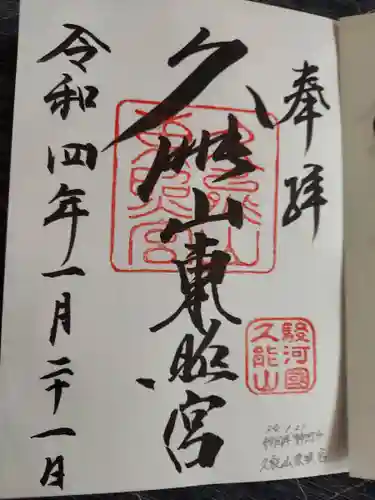 奉拝
久能山東照宮
駿河國
久能山
令和四年一月二十一日
久能山東照宮